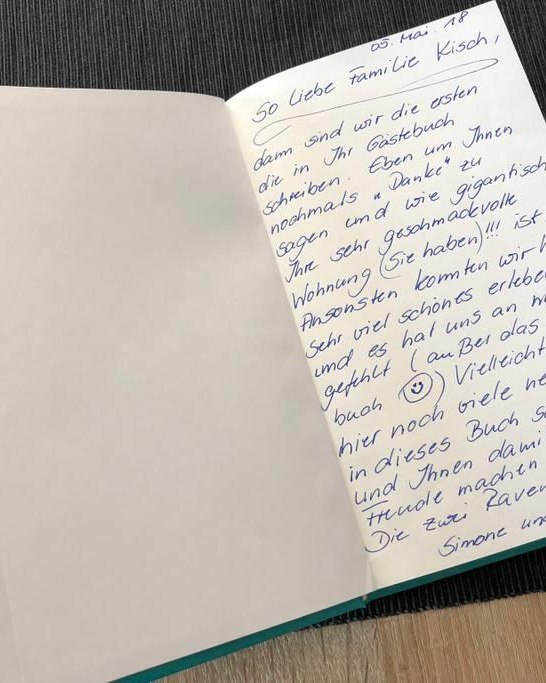 05. Mai 18
So liebe Familie Kisch,
dann sind wir die ersten
die in Ihr Gästebuch
schreiben. Eben um Ihnen
nochmals „Danke" zu
sagen und wie gigantisch
Ihre sehr geschmackvolle
Wohnung (Sie haben)!!! ist
Ansonsten konnten wir h
sehr viel schönes erlebe
und es hat uns an ni
gefehlt (außer das
buch ☺) Vielleicht
hier noch viele ne
in dieses Buch s
und Ihnen dami
Freude machen
Die zwei Raven
Simone und